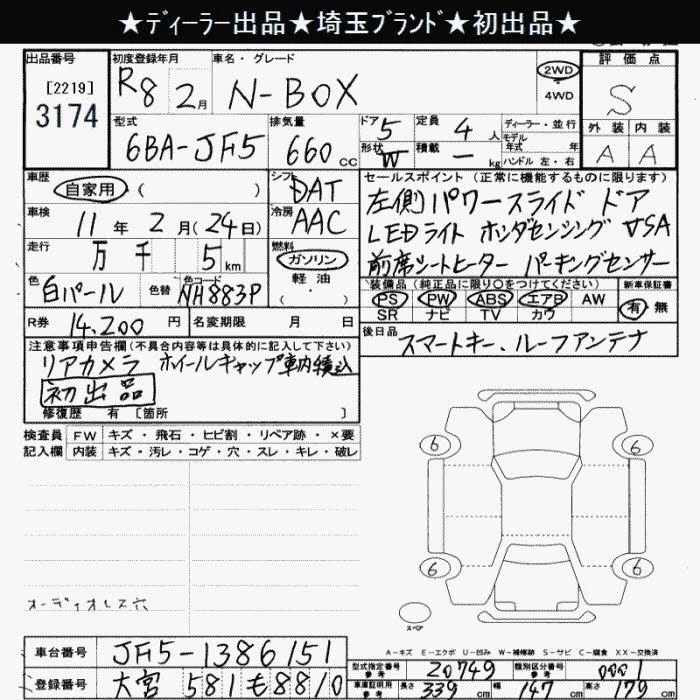 ★ディーラー出品★埼玉ブランド★初出品★
出品番号 初度登録年月 車名・グレード 評価点
[2219] R8 2月 N-BOX 2WD S
3174 4WD
型式 排気量 ドア 5 定員 4人 ディーラー・並行 外装 内装
6BA-JF5 660cc 形状 W 積載 ― kg モデル年式 年 A A
ハンドル 左・右
車歴 自家用 ( ) シフト DAT セールスポイント(正常に機能するものに限ります)
車検 11年 2月(24日) 冷房 AAC 左側パワースライドドア
走行 万 千 5km 燃料 ガソリン LEDライト ホンダセンシング VSA
軽油 ( ) 前席シートヒーター パーキングセンサー
色 白パール 色替 色コード NH883P 装備品(純正品に限り○をつけてください) 新車保証書
PS PW ABS エアB AW 有 無
SR ナビ TV カワ
R券 14,200円 名変期限 月 日 後日品
スマートキー、ルーフアンテナ
注意事項申告欄(不具合内容等は具体的に記入して下さい)
リアカメラ ホイールキャップ車内積込
初出品
修復歴 有 [箇所 ]
検査員 FW キズ・飛石・ヒビ割・リペア跡・×要
記入欄 内装 キズ・汚レ・コゲ・穴・スレ・キレ・破レ
6 6
6 6
オーディオレス穴
スペア
A-キズ E-エクボ U-凹み W-補修跡 S-サビ C-腐食 XX-交換済
車台番号 JF5-1386151 型式指定番号 参考 20749 類別区分番号 参考 0001
登録番号 大宮 581 も8810 車庫証明用 参考 長さ 339cm 幅 147cm 高さ 179cm